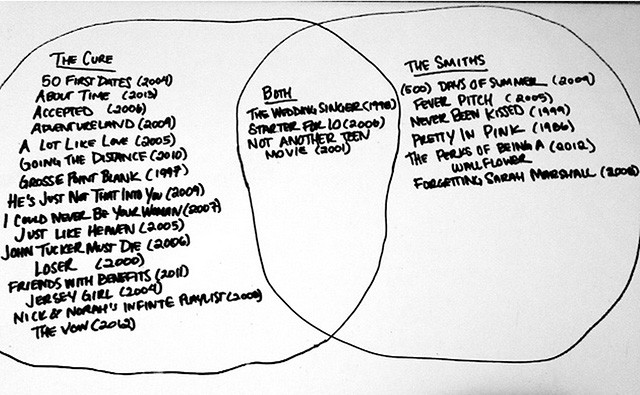 THE CURE
50 FIRST DATES (2004)
ABOUT TIME (2013)
ACCEPTED (2006)
ADVENTURELAND (2009)
A LOT LIKE LOVE (2005)
GOING THE DISTANCE (2010)
GROSSE POINT BLANK (1997)
HE'S JUST NOT THAT INTO YOU (2009)
I COULD NEVER BE YOUR WOMAN (2007)
JUST LIKE HEAVEN (2005)
JOHN TUCKER MUST DIE (2006)
LOSER (2000)
FRIENDS WITH BENEFITS (2011)
JERSEY GIRL (2004)
NICK & NORAH'S INFINITE PLAYLIST (2008)
THE VOW (2012)
BOTH
THE WEDDING SINGER (1998)
STARTER FOR 10 (2006)
NOT ANOTHER TEEN
MOVIE (2001)
THE SMITHS
(500) DAYS OF SUMMER (2009)
FEVER PITCH (2005)
NEVER BEEN KISSED (1999)
PRETTY IN PINK (1986)
THE PERKS OF BEING A (2012)
WALLFLOWER
FORGETTING SARAH MARSHALL (2008)